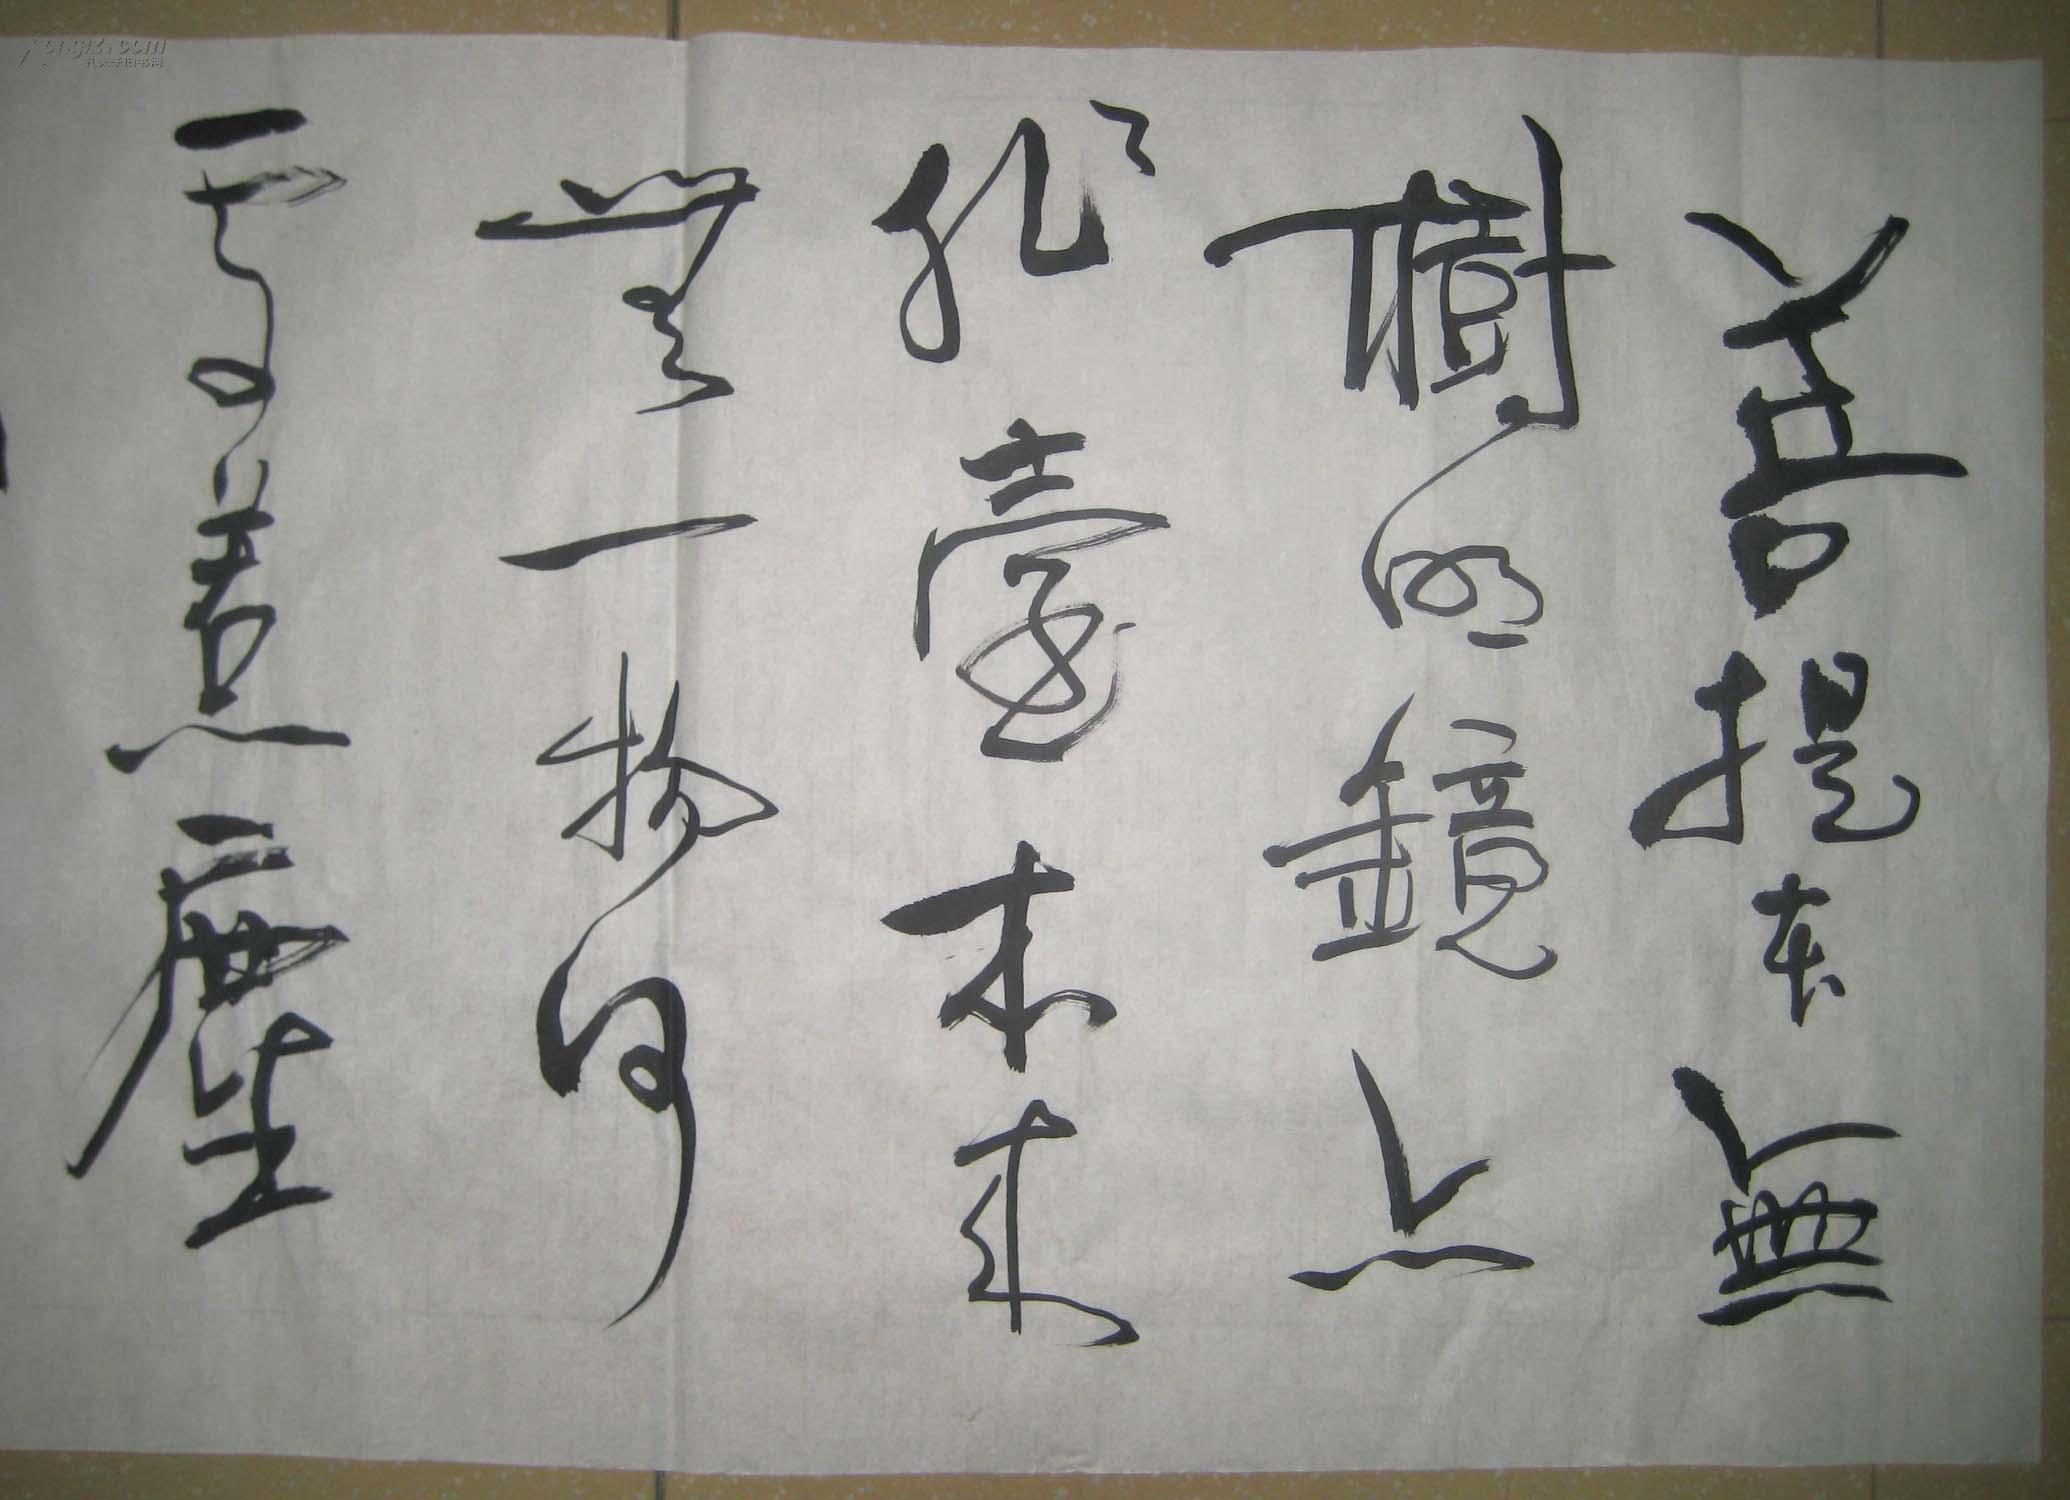 菩提本無
樹明鏡亦
非臺本來
無一物何
處惹塵
kongfz.com
孔夫子旧书网